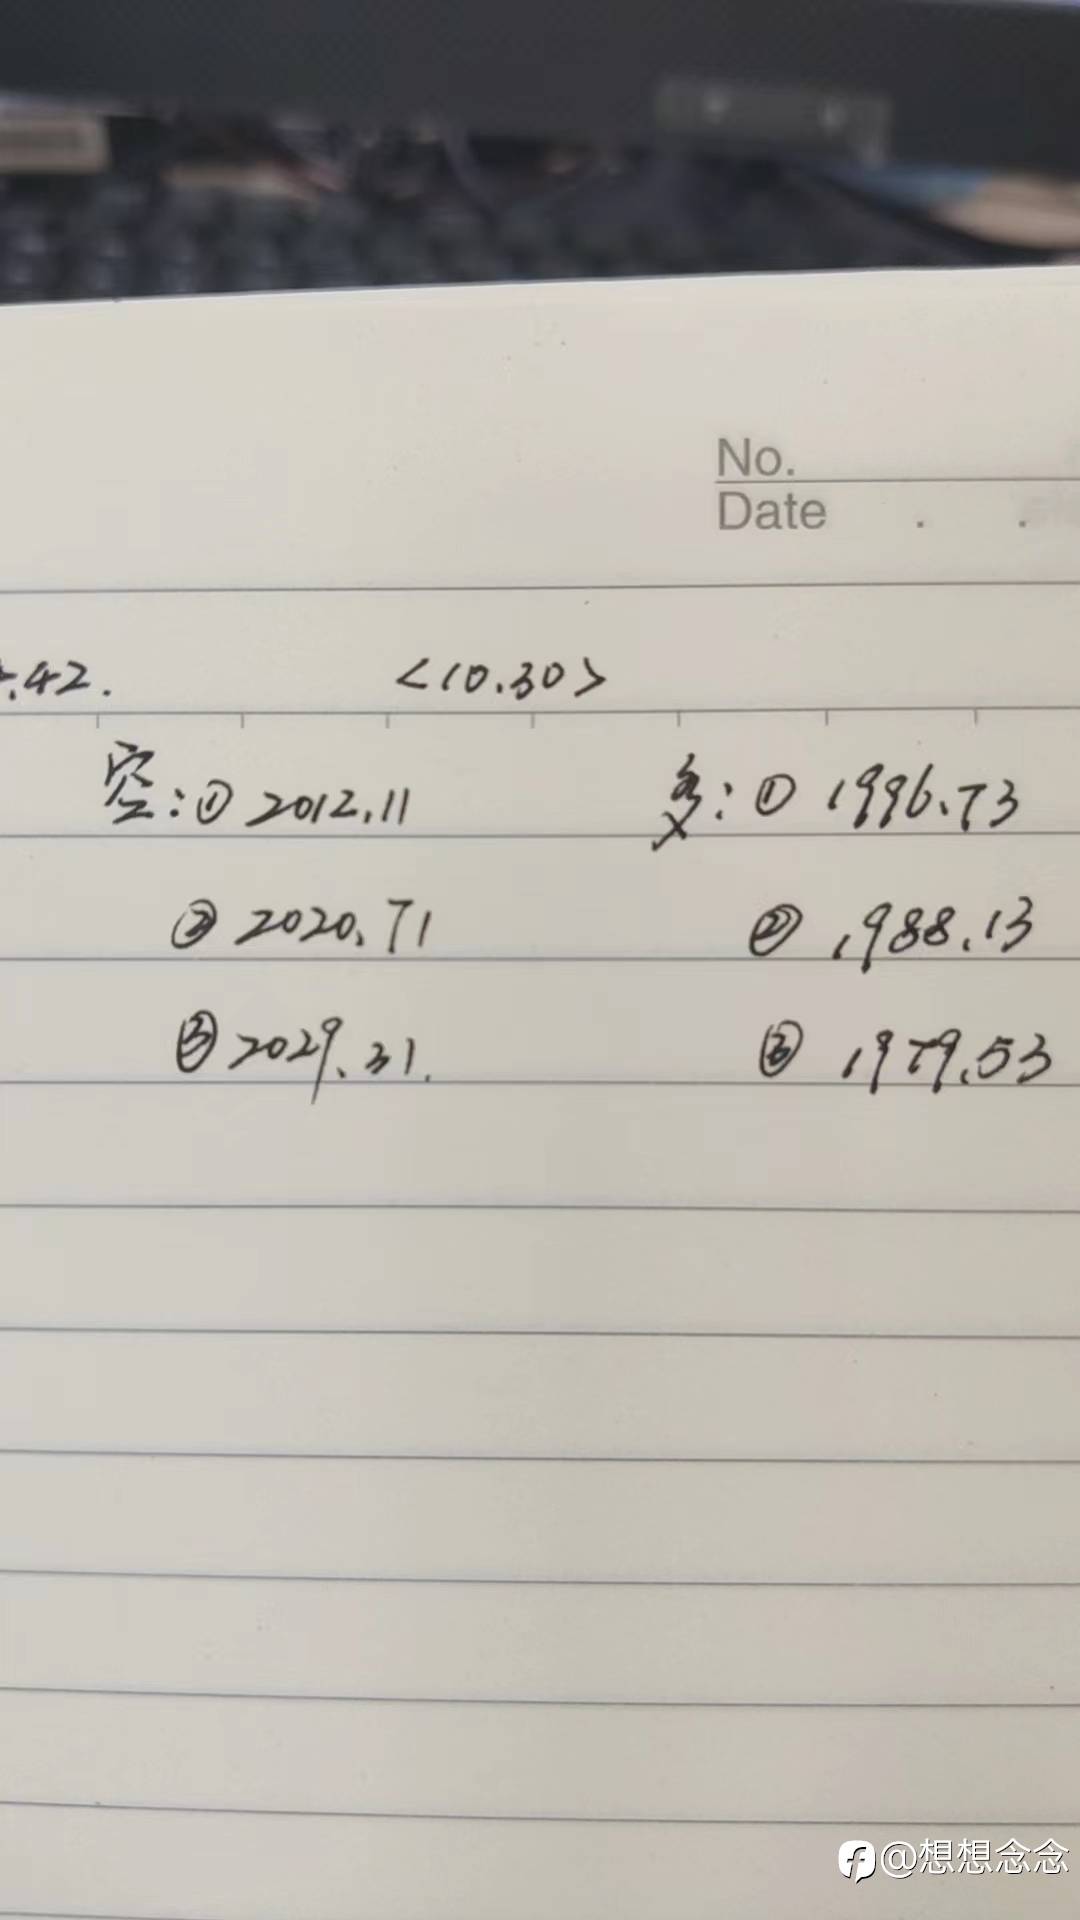 No.
Date . .
.42. <10.30>
空:① 2012.11 多:① 1996.73
② 2020.71 ② 1988.13
③ 2029.31. ③ 1979.53
@想想念念